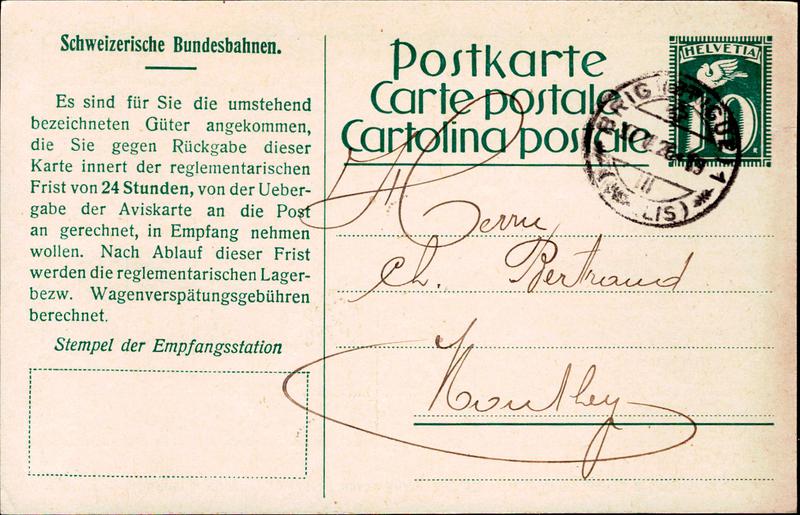 Schweizerische Bundesbahnen.
Es sind für Sie die umstehend
bezeichneten Güter angekommen,
die Sie gegen Rückgabe dieser
Karte innert der reglementarischen
Frist von 24 Stunden, von der Ueber-
gabe der Aviskarte an die Post
an gerechnet, in Empfang nehmen
wollen. Nach Ablauf dieser Frist
werden die reglementarischen Lager-
bezw. Wagenverspätungsgebühren
berechnet.
Stempel der Empfangsstation
Postkarte
Carte postale
Cartolina postale
HELVETIA
10
BRIG (BRIGUE) 1
III
LIS)
Herrn
Ch. Bertrand
Monthey